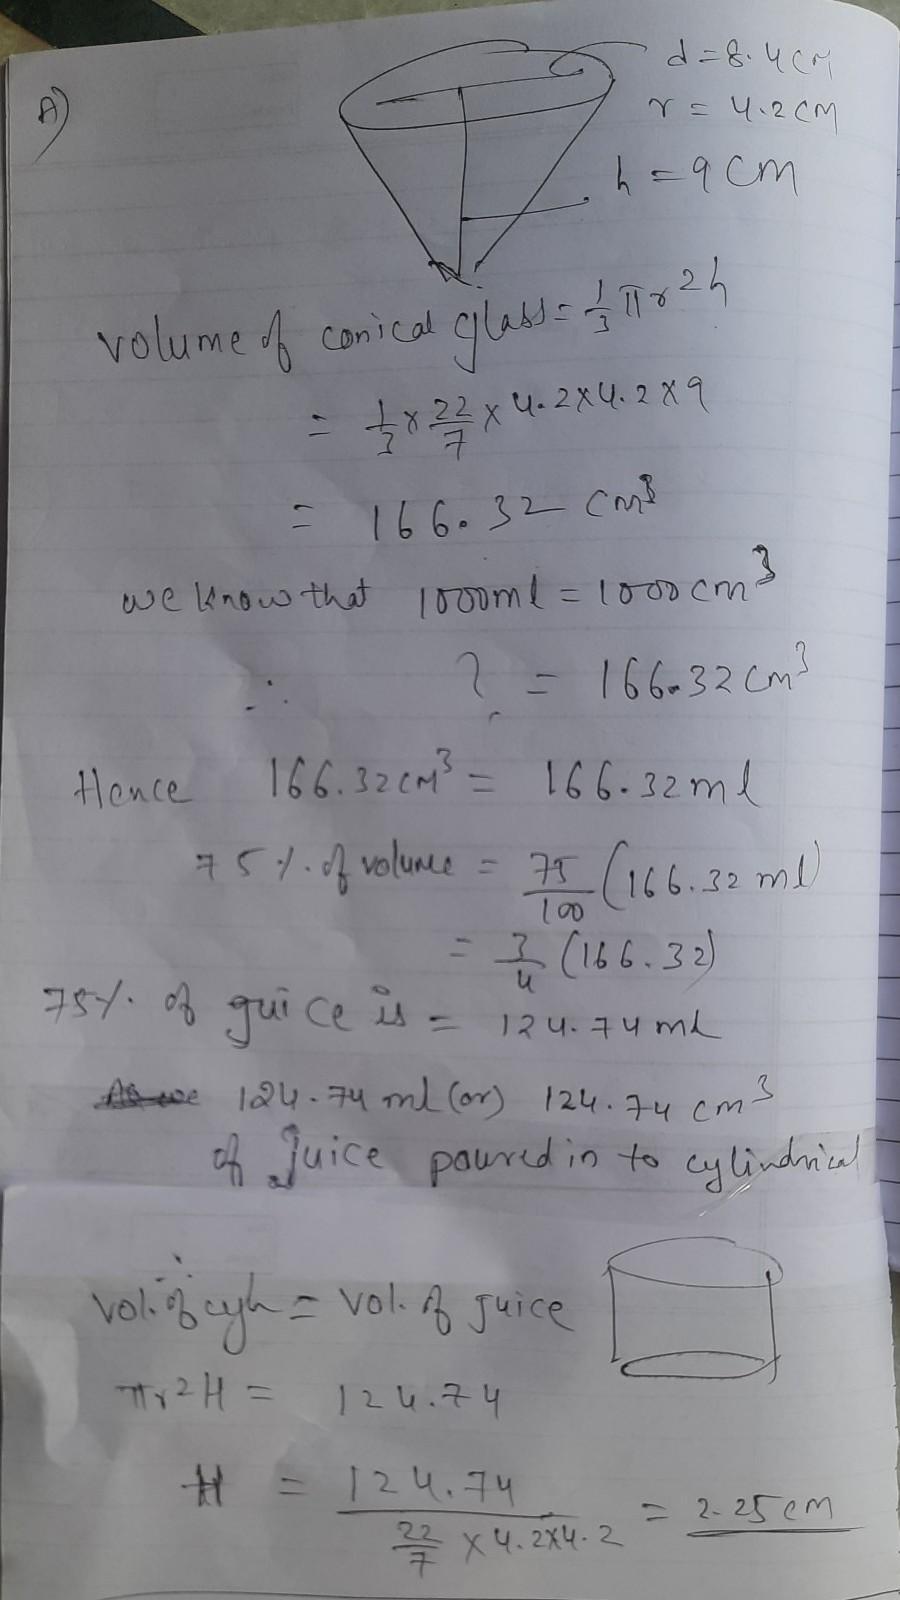 A)
d=8.4cm
r = 4.2cm
h = 9cm
Volume of conical glass = 1/3 πr²h
= 1/3 × 22/7 × 4.2×4.2×9
= 166.32 cm³
we know that 1000ml = 1000cm³
∴ ? = 166.32cm³
Hence 166.32cm³ = 166.32ml
75%. of volume = 75/100 (166.32 ml)
= 3/4 (166.32)
75%. of guice is = 124.74ml
124.74 ml (or) 124.74 cm³
of juice poured in to cylindrical
vol. of cyh = vol. of juice
πr²H = 124.74
H = 124.74 / 22/7 × 4.2×4.2 = 2.25cm